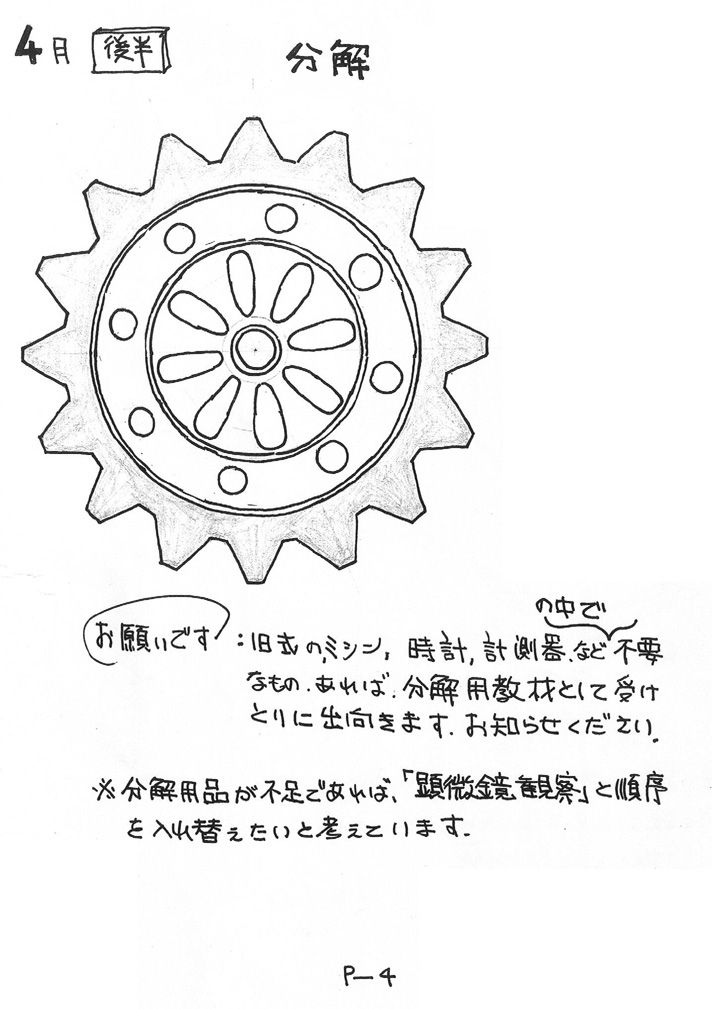 4月 後半 分解
の中で
お願いです：旧式のミシン，時計，計測器.など不要
なもの.あれば.分解用教材として受け
とりに出向きます.お知らせください.
※分解用品が不足であれば，「顕微鏡観察」と順序
を入れ替えたいと考えています.
P-4